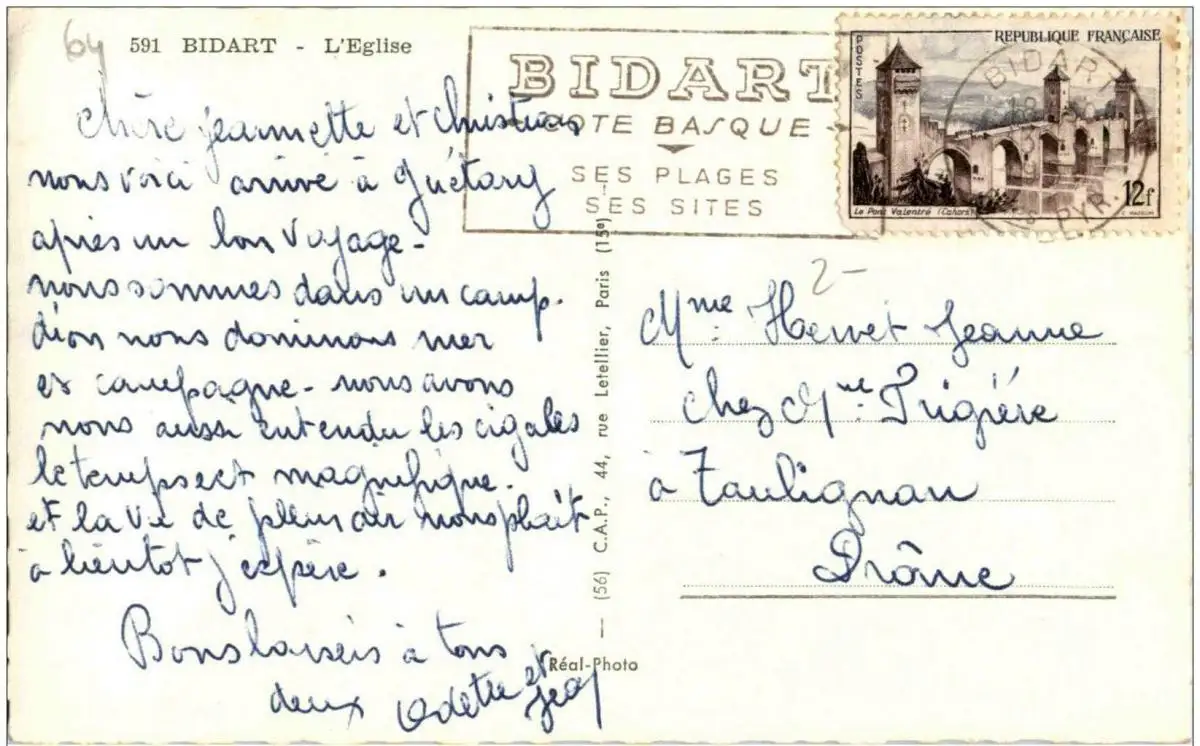 64
591 BIDART - L'Eglise
Chère Jeannette et Christian
nous voici arrivé à Guétary
après un bon voyage -
nous sommes dans un camp.
d'ion nous dominons mer
et campagne - nous avons
nous aussi entendu les cigales
le temps est magnifique.
et la vie de plein air nous plait
à bientot j'espère.
Bons baisers à tous
deux Odette et
Jean
BIDART
COTE BASQUE
SES PLAGES
SES SITES
POSTES
REPUBLIQUE FRANÇAISE
Le Pont Valentré (Cahors)
12f
BIDART
PYR.
2-
Mme Hervet Jeanne
chez Mme Trigière
à Taulignan
Drôme
(56) C.A.P., 44, rue Letellier, Paris (15e)
Réal-Photo